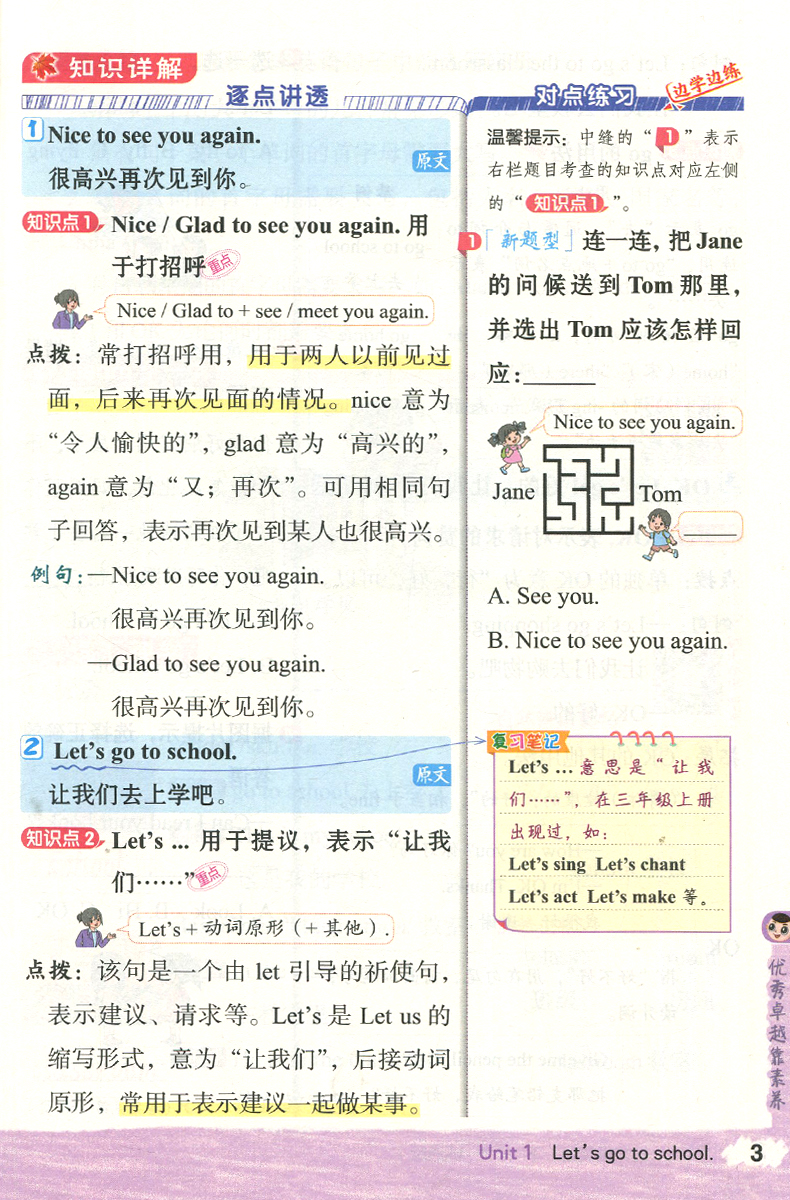 知识详解
逐点讲透
1 Nice to see you again.
原文
很高兴再次见到你。
知识点1 Nice / Glad to see you again. 用
于打招呼 重点
Nice / Glad to + see / meet you again.
点拨：常打招呼用，用于两人以前见过
面，后来再次见面的情况。nice 意为
“令人愉快的”，glad 意为“高兴的”，
again 意为“又；再次”。可用相同句
子回答，表示再次见到某人也很高兴。
例句：—Nice to see you again.
很高兴再次见到你。
—Glad to see you again.
很高兴再次见到你。
2 Let’s go to school.
原文
让我们去上学吧。
知识点2 Let’s ... 用于提议，表示“让我
们……” 重点
Let’s + 动词原形（+ 其他）.
点拨：该句是一个由 let 引导的祈使句，
表示建议、请求等。Let’s 是 Let us 的
缩写形式，意为“让我们”，后接动词
原形，常用于表示建议一起做某事。
对点练习
边学边练
温馨提示：中缝的“1”表示
右栏题目考查的知识点对应左侧
的“知识点1”。
1「新题型」连一连，把 Jane
的问候送到 Tom 那里，
并选出 Tom 应该怎样回
应：______
Nice to see you again.
Jane
Tom
A. See you.
B. Nice to see you again.
复习笔记
Let’s ... 意思是“让我
们……”，在三年级上册
出现过，如：
Let’s sing Let’s chant
Let’s act Let’s make 等。
优秀卓越靠素养
Unit 1 Let’s go to school. 3